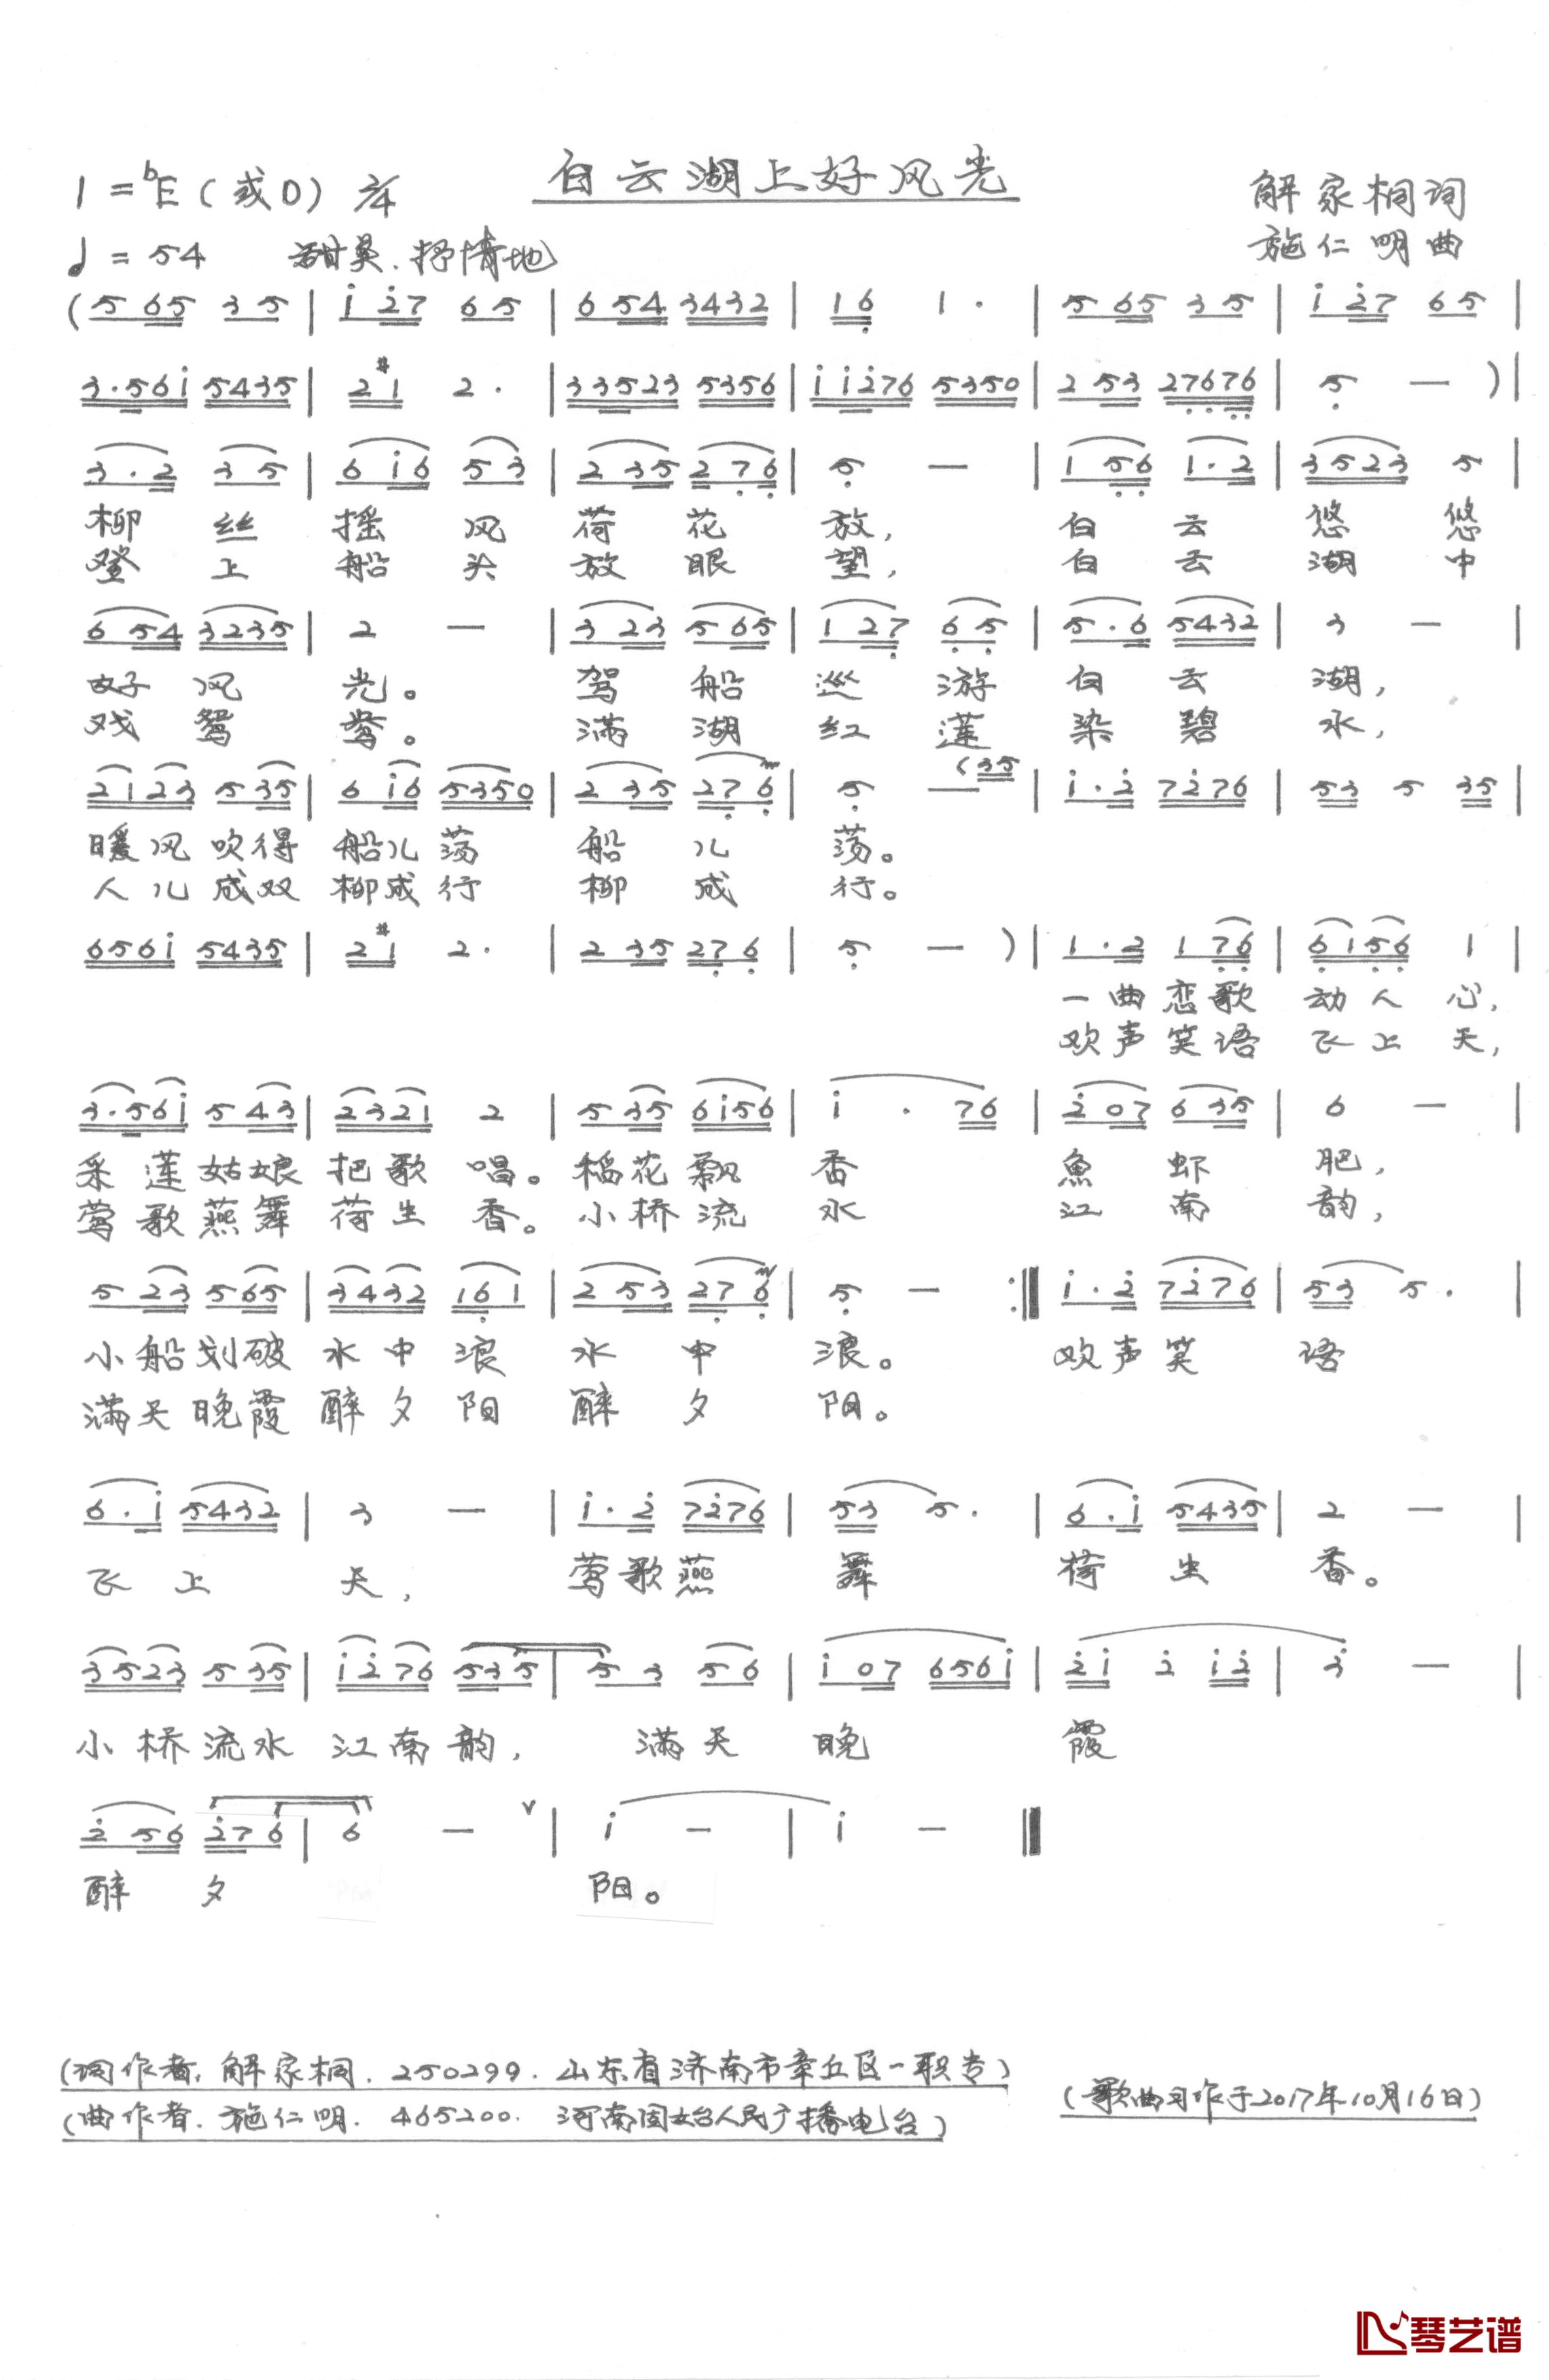 白云湖上好风光
1=ᵇE(或D) 2/4
解家桐词
♩=54 甜美.抒情地
施仁明曲
(5 65 3 5 | i̇ 2̇7 6 5 | 6 54 3432 | 16̣ 1 · | 5 65 3 5 | i̇ 2̇7 6 5 |
3·56i̇ 5435 | 2#1 2 · | 33523 5356 | i̇i̇2̇76 5350 | 2 53 27̣6̣7̣6̣ | 5̣ — )|
3·2 3 5 | 6 i̇6 5 3 | 2 35 2 7̣6̣ | 5̣ — | 1 5̣6̣ 1·2 | 3523 5 |
柳丝摇风荷花放, 白云悠悠
登上船头放眼望, 白云湖中
6 54 3235 | 2 — | 3 23 5 65 | 1 27̣ 6̣ 5̣ | 5·6 5432 | 3 — |
好风光。 驾船巡游白云湖,
戏鸳鸯。 满湖红莲染碧水,
2123 5 35 | 6 i̇6 5350 | 2 35 27̣6̣ | 5̣ — (35 | i̇·2̇ 72̇76 | 53 5 35 |
暖风吹得船儿荡 船儿荡。
人儿成双柳成行 柳成行。
656i̇ 5435 | 2#1 2 · | 2 35 27̣6̣ | 5̣ — )| 1·2 1 7̣6̣ | 6̣15̣6̣ 1 |
一曲恋歌动人心,
欢声笑语飞上天,
3·56i̇ 5 43 | 2321 2 | 5 35 6i̇56 | i̇ · 76 | 2̇ 07 6 35 | 6 — |
采莲姑娘把歌唱。稻花飘香 鱼虾肥,
莺歌燕舞荷生香。小桥流水 江南韵,
5 23 5 65 | 3432 16̣1 | 2 53 27̣6̣ | 5̣ — :‖ i̇·2̇ 72̇76 | 53 5 · |
小船划破水中浪 水中浪。 欢声笑语
满天晚霞醉夕阳 醉夕阳。
6·i̇ 5432 | 3 — | i̇·2̇ 72̇76 | 53 5 · | 6·i̇ 5435 | 2 — |
飞上天, 莺歌燕舞 荷生香。
3523 5 35 | i̇2̇76 535 | 5 3 5 6 | i̇ 07 656i̇ | 2̇i̇ 2̇ i̇2̇ | 3̇ — |
小桥流水江南韵, 满天晚 霞
2̇ 56 2̇76 | 6 — ∨ | i̇ — | i̇ — ‖
醉夕 阳。
(词作者:解家桐.250299.山东省济南市章丘区一职专)
(歌曲习作于2017年10月16日)
(曲作者.施仁明.465200.河南固始人民广播电台)
琴艺谱